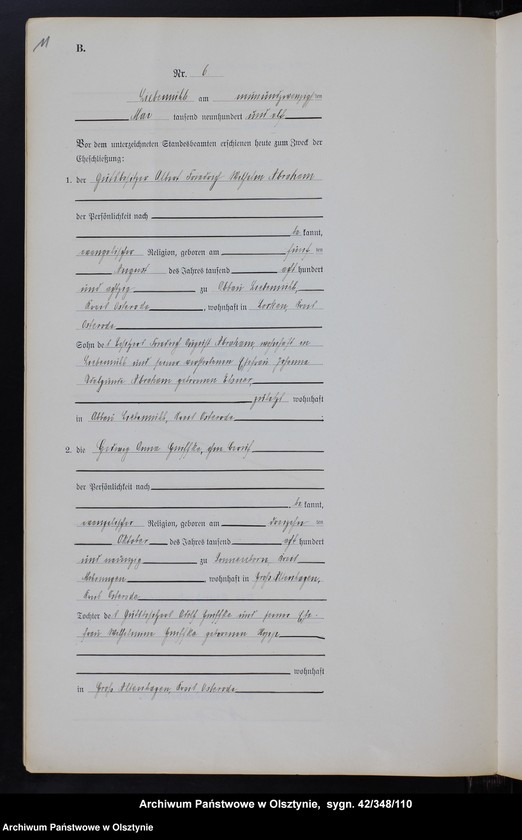 11
B.
Nr. 6
Liebemühl am neunundzwanzigsten
Mai tausend neunhundert und elf
Vor dem unterzeichneten Standesbeamten erschienen heute zum Zweck der
Eheschließung:
1. der Gutsbesitzer Albert Friedrich Wilhelm Abraham
der Persönlichkeit nach
be kannt,
evangelischer Religion, geboren am fünf ten
August des Jahres tausend acht hundert
und achtzig zu Abbau Liebemühl,
Kreis Osterode, wohnhaft in Locken, Kreis
Osterode
Sohn des Besitzers Friedrich August Abraham, wohnhaft in
Liebemühl und seiner verstorbenen Ehefrau Johanna
Abraham geborenen
zuletzt wohnhaft
in Abbau Liebemühl, Kreis Osterode.
2. die Hedwig Anna, ohne Beruf
der Persönlichkeit nach
be kannt,
evangelischer Religion, geboren am dreizehn ten
Oktober des Jahres tausend acht hundert
und neunzig zu Sonnenborn, Kreis
Mohrungen, wohnhaft in Groß Altenhagen,
Kreis Osterode
Tochter des Gutsbesitzers Adolf und seiner Ehe-
frau Wilhelmine geborenen Hoppe
wohnhaft
in Groß Altenhagen, Kreis Osterode
Archiwum Państwowe w Olsztynie, sygn. 42/348/110
Archiwum Państwowe w Olsztynie